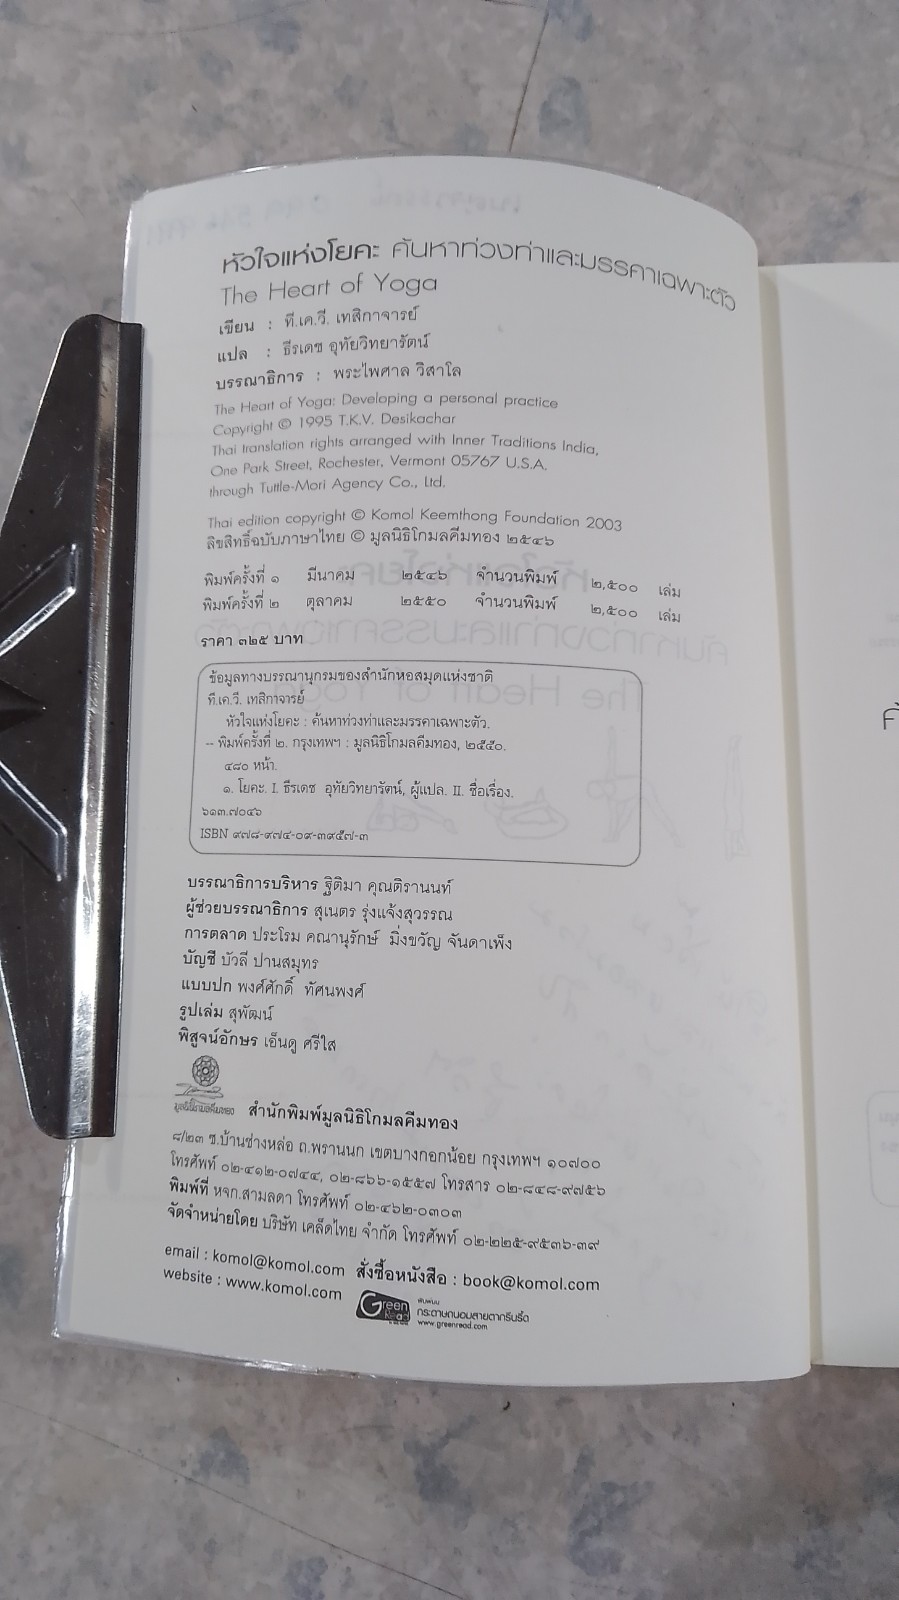 หัวใจแห่งโยคะ ค้นหาท่วงท่าและมรรคาเฉพาะตัว
The Heart of Yoga
เขียน : ที.เค.วี. เทสิกาจารย์
แปล : ธีรเดช อุทัยวิทยารัตน์
บรรณาธิการ : พระไพศาล วิสาโล
The Heart of Yoga: Developing a personal practice
Copyright © 1995 T.K.V. Desikachar
Thai translation rights arranged with Inner Traditions India,
One Park Street, Rochester, Vermont 05767 U.S.A.
through Tuttle-Mori Agency Co., Ltd.
Thai edition copyright © Komol Keemthong Foundation 2003
ลิขสิทธิ์ฉบับภาษาไทย © มูลนิธิโกมลคีมทอง ๒๕๔๖
พิมพ์ครั้งที่ ๑ มีนาคม ๒๕๔๖ จำนวนพิมพ์ ๒,๕๐๐ เล่ม
พิมพ์ครั้งที่ ๒ ตุลาคม ๒๕๕๐ จำนวนพิมพ์ ๒,๕๐๐ เล่ม
ราคา ๓๒๕ บาท
ข้อมูลทางบรรณานุกรมของสำนักหอสมุดแห่งชาติ
ที.เค.วี. เทสิกาจารย์
หัวใจแห่งโยคะ : ค้นหาท่วงท่าและมรรคาเฉพาะตัว.
-- พิมพ์ครั้งที่ ๒. กรุงเทพฯ : มูลนิธิโกมลคีมทอง, ๒๕๕๐.
๔๘๐ หน้า.
๑. โยคะ. I. ธีรเดช อุทัยวิทยารัตน์, ผู้แปล. II. ชื่อเรื่อง.
๖๑๓.๗๐๔๖
ISBN ๙๗๘-๙๗๔-๐๙-๓๙๕๗-๓
บรรณาธิการบริหาร ฐิติมา คุณติรานนท์
ผู้ช่วยบรรณาธิการ สุเนตร รุ่งแจ้งสุวรรณ
การตลาด ประโรม คณานุรักษ์ มิ่งขวัญ จันดาเพ็ง
บัญชี บัวลี ปานสมุทร
แบบปก พงศ์ศักดิ์ ทัศนพงศ์
รูปเล่ม สุพัฒน์
พิสูจน์อักษร เอ็นดู ศรีใส
มูลนิธิโกมลคีมทอง สำนักพิมพ์มูลนิธิโกมลคีมทอง
๘/๒๓ ซ.บ้านช่างหล่อ ถ.พรานนก เขตบางกอกน้อย กรุงเทพฯ ๑๐๗๐๐
โทรศัพท์ ๐๒-๔๑๒-๐๗๔๔, ๐๒-๘๖๖-๑๕๕๗ โทรสาร ๐๒-๘๔๘-๙๗๕๖
พิมพ์ที่ หจก.สามลดา โทรศัพท์ ๐๒-๔๖๒-๐๓๐๓
จัดจำหน่ายโดย บริษัท เคล็ดไทย จำกัด โทรศัพท์ ๐๒-๒๒๕-๙๕๓๖-๓๙
email : komol@komol.com สั่งซื้อหนังสือ : book@komol.com
website : www.komol.com
Green Read
กระดาษถนอมสายตากรีนรี้ด
www.greenread.com